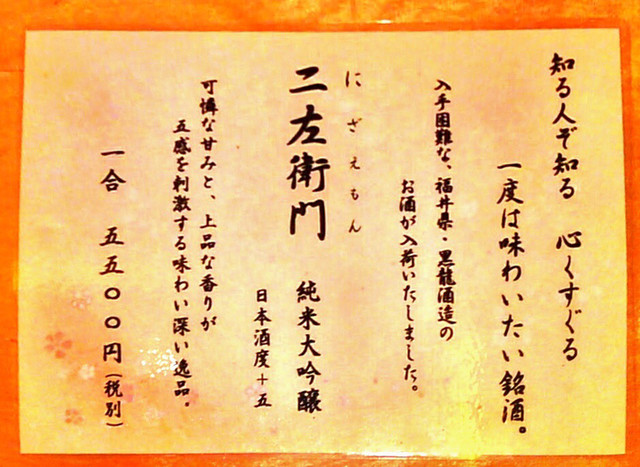 知る人ぞ知る　心くすぐる
一度は味わいたい銘酒。
入手困難な、福井県・黒龍酒造の
お酒が入荷いたしました。
にざえもん
二左衛門　純米大吟醸
日本酒度＋五
可憐な甘みと、上品な香りが
五感を刺激する味わい深い逸品。
一合　五五〇〇円（税別）